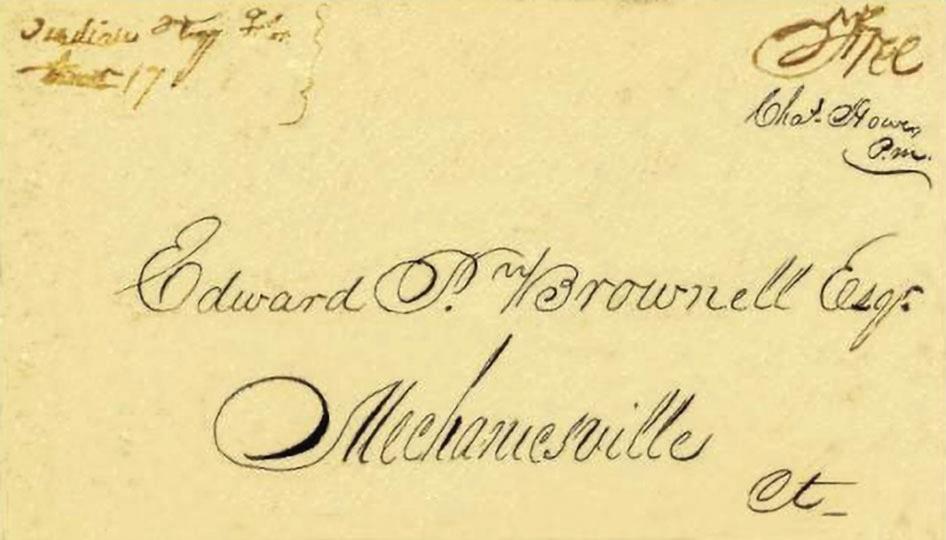 Indian Key Flo.
17
Free
Chas. Howe
P.m.
Edward P. Brownell Esqr.
Mechanicsville
Ct